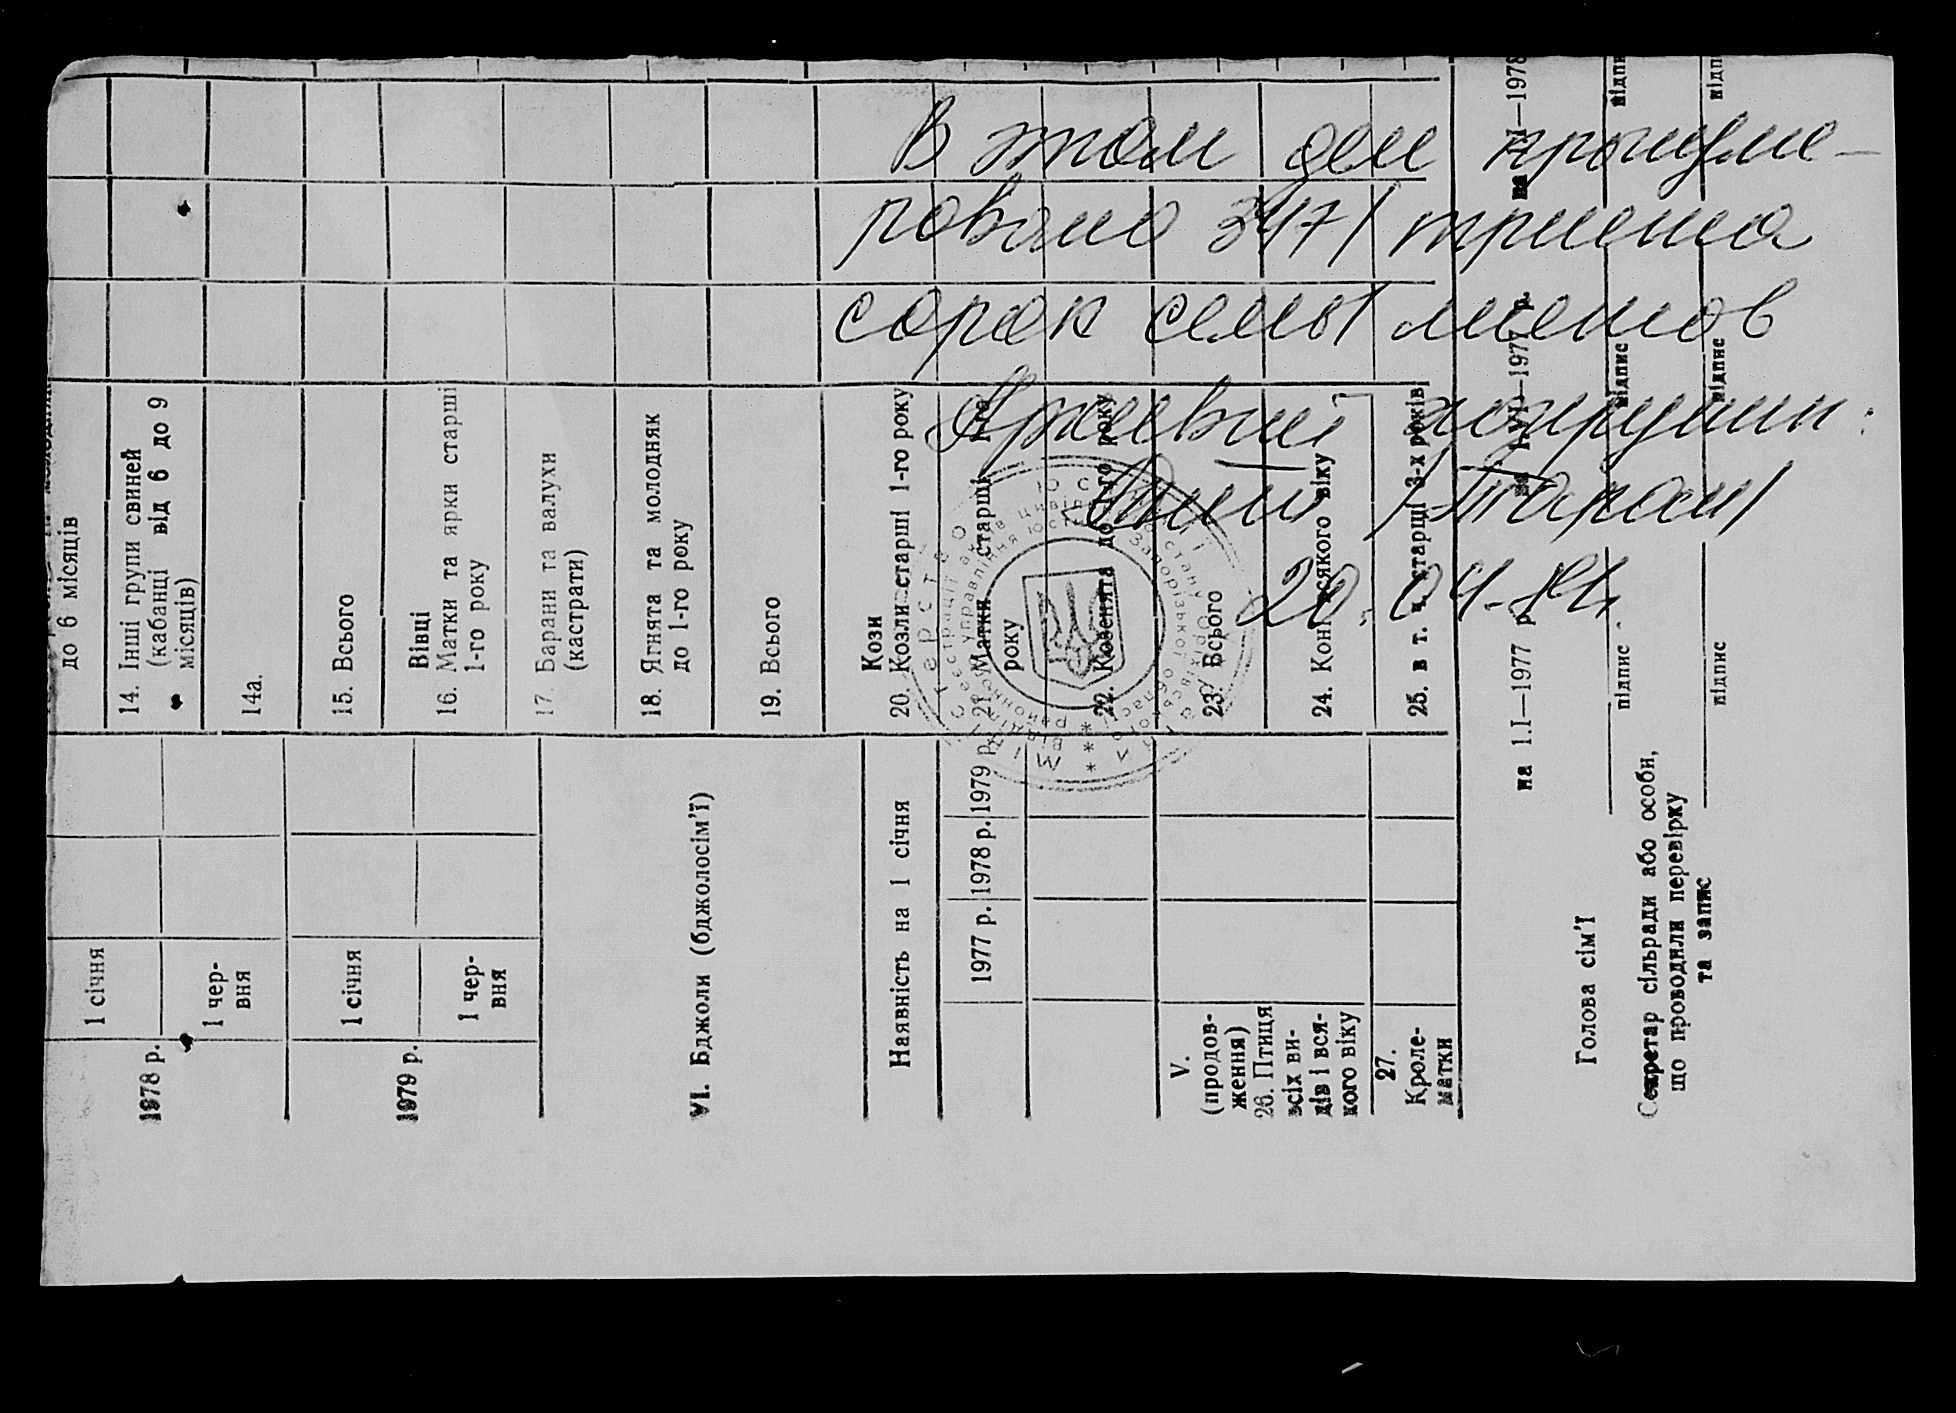 В этом деле пронуме-
ровано 347/ триста
сорок семь/ листов
Архивный
/Таран/
20.04.84.
до 6 місяців
14. Інші групи свиней
(кабанці від 6 до 9
місяців)
14а.
15. Всього
Вівці
16. Матки та ярки старші
1-го року
17. Барани та валухи
(кастрати)
18. Ягнята та молодняк
до 1-го року
19. Всього
Кози
20. Козли старші 1-го року
21. Матки старші 1-го
року
22. Козенята до 1-го року
23. Всього
24. Коні всякого віку
25. в т. ч. старші 3-х років
1978 р.
1 січня
1 чер-
вня
1979 р.
1 січня
1 чер-
вня
VI. Бджоли (бджолосім'ї)
Наявність на 1 січня
1977 р.
1978 р.
1979 р.
V.
(продов-
ження)
26. Птиця
всіх ви-
дів і вся-
кого віку
27.
Кроле-
матки
на 1.I—1977 р.
підпис
підпис
підпис
підпис
Голова сім'ї
Секретар сільради або особи,
що проводили перевірку
та запис
Міністерство юстиції України